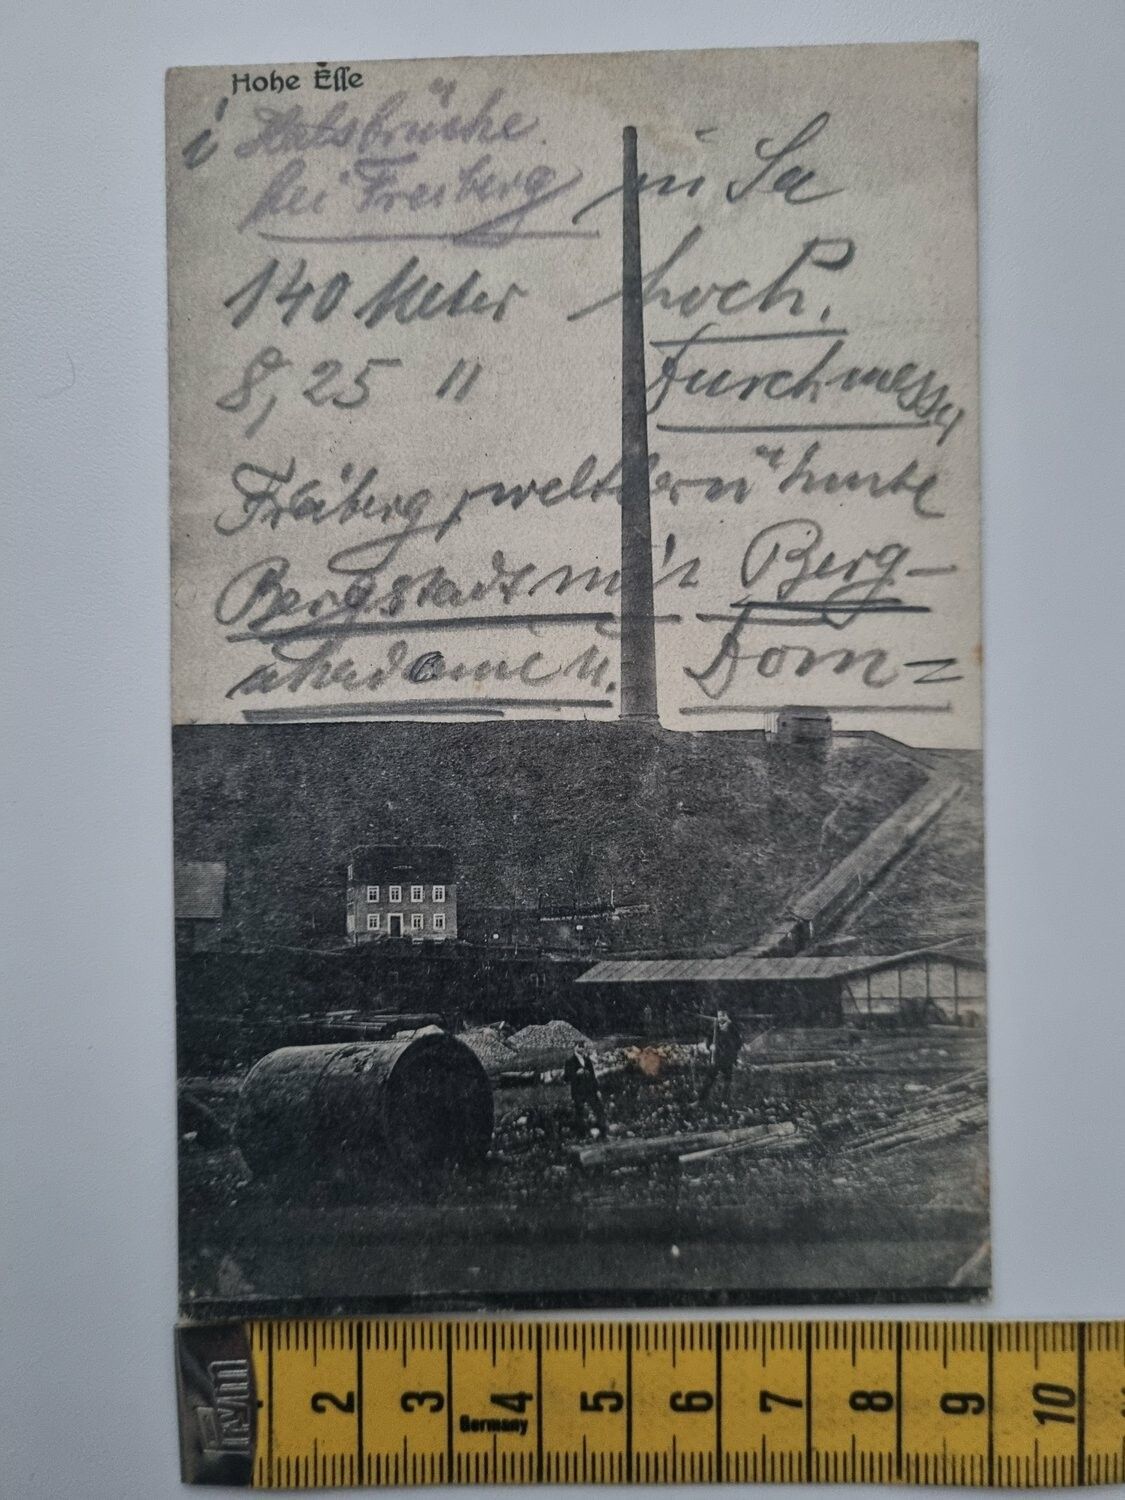 Hohe Esse
i Halsbrücke
bei Freiberg in Sa
140 Meter hoch.
8,25 " Durchmesser
Freiberg, weltberühmte
Bergstadt mit Berg-
akademie u. Dom-
PRYM
2 3 4 5 6 7 8 9 10
Germany